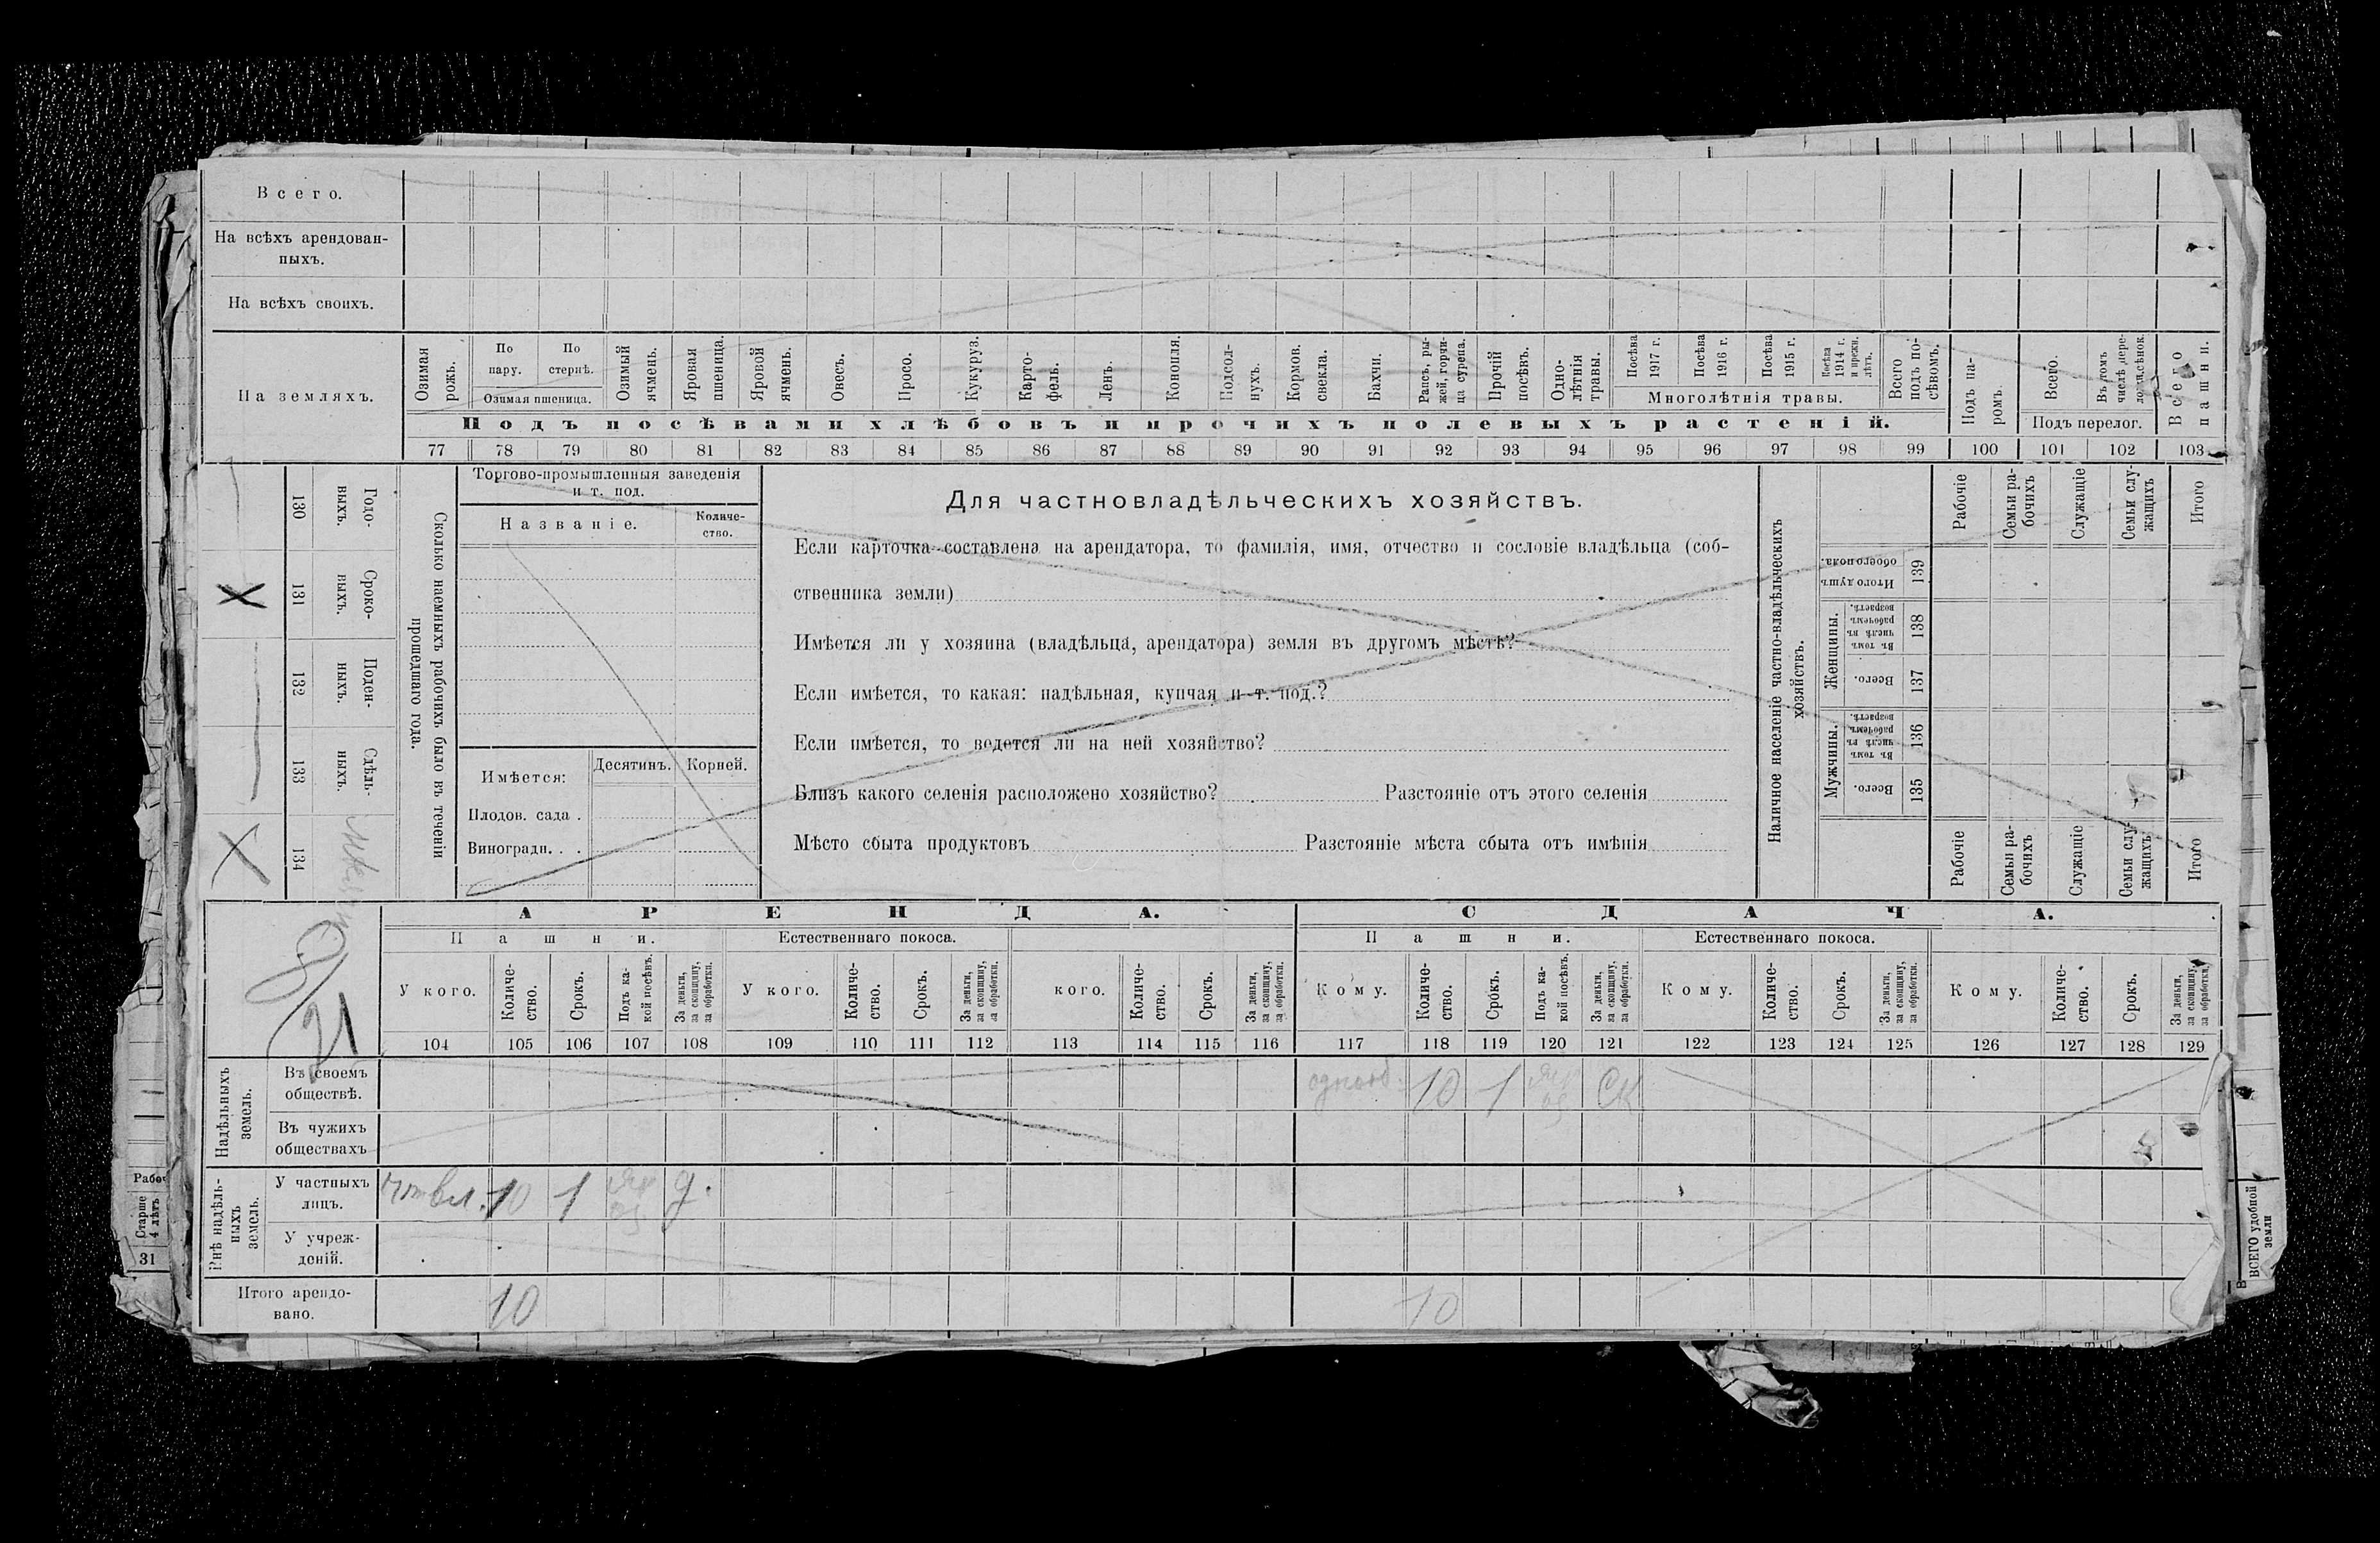 Всего.
На всѣхъ арендован-
ныхъ.
На всѣхъ своихъ.
На земляхъ.
Озимая рожь.
По пару.
По стернѣ.
Озимая пшеница.
Озимый ячмень.
Яровая пшеница.
Яровой ячмень.
Овесъ.
Просо.
Кукуруз.
Карто-
фель.
Ленъ.
Конопля.
Подсол-
нухъ.
Кормов. свекла.
Бахчи.
Рапсъ, ры-
жей, горчи-
ца сурепа.
Прочій посѣвъ.
Одно-
лѣтнія травы.
Посѣва 1917 г.
Посѣва 1916 г.
Посѣва 1915 г.
Посѣва 1914 г. и прежн. лѣтъ.
Многолѣтнія травы.
Всего подъ по-
сѣвомъ.
Подъ па-
ромъ.
Всего.
Въ томъ числѣ пере-
Подъ перелог.
Всего пашни.
Подъ посѣвами хлѣбовъ и прочихъ полевыхъ растеній.
77 78 79 80 81 82 83 84 85 86 87 88 89 90 91 92 93 94 95 96 97 98 99 100 101 102 103
130 Годо-
выхъ.
131 Сроко-
выхъ.
132 Поден-
ныхъ.
133 Сдѣль-
ныхъ.
134
Сколько наемныхъ рабочихъ было въ теченіи
прошедшаго года.
Торгово-промышленныя заведенія
и т. под.
Названіе.
Количе-
ство.
Имѣется:
Десятинъ.
Корней.
Плодов. сада .
Виноградн. . .
Для частновладѣльческихъ хозяйствъ.
Если карточка составлена на арендатора, то фамилія, имя, отчество и сословіе владѣльца (соб-
ственника земли)
Имѣется ли у хозяина (владѣльца, арендатора) земля въ другомъ мѣстѣ?
Если имѣется, то какая: надѣльная, купчая и т. под.?
Если имѣется, то ведется ли на ней хозяйство?
Близъ какого селенія расположено хозяйство? Разстояніе отъ этого селенія
Мѣсто сбыта продуктовъ Разстояніе мѣста сбыта отъ имѣнія
Наличное населеніе частно-владѣльческихъ
хозяйствъ.
Рабочіе
Семьи ра-
бочихъ
Служащіе
Семьи слу-
жащихъ
Итого
Итого душъ обоего пола. 139
Женщины.
Въ томъ числѣ въ рабочемъ возрастѣ. 138
Всего. 137
Мужчины.
Въ томъ числѣ въ рабочемъ возрастѣ. 136
Всего. 135
Рабочіе
Семьи ра-
бочихъ
Служащіе
Семьи слу-
жащихъ
Итого
АРЕНДА.
СДАЧА.
Пашни.
Естественнаго покоса.
Пашни.
Естественнаго покоса.
У кого.
Количе-
ство.
Срокъ.
Подъ ка-
кой посѣвъ.
За деньги,
за скопщину,
за обработки.
У кого.
Количе-
ство.
Срокъ.
За деньги,
за скопщину,
за обработки.
кого.
Количе-
ство.
Срокъ.
За деньги,
за скопщину,
за обработки.
Кому.
Количе-
ство.
Срокъ.
Подъ ка-
кой посѣвъ.
За деньги,
за скопщину,
за обработки.
Кому.
Количе-
ство.
Срокъ.
За деньги,
за скопщину,
за обработки.
Кому.
Количе-
ство.
Срокъ.
За деньги,
за скопщину,
за обработки.
104 105 106 107 108 109 110 111 112 113 114 115 116 117 118 119 120 121 122 123 124 125 126 127 128 129
Надѣльныхъ
земель.
Въ своемъ
обществѣ.
10 1 СК
Въ чужихъ
обществахъ
Внѣ надѣль-
ныхъ
земель.
У частныхъ
лицъ.
10 1 д.
У учреж-
деній.
Итого арендо-
вано.
10 10
Старше
4 лѣтъ
31
ВСЕГО удобной
земли